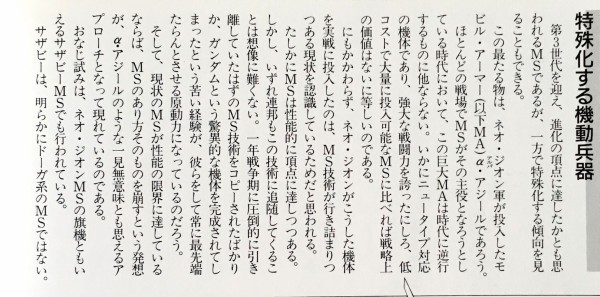 特殊化する機動兵器
第3世代を迎え、進化の頂点に達したかとも思
われるMSであるが、一方で特殊化する傾向を見
ることもできる。
この最たる物は、ネオ・ジオン軍が投入したモ
ビル・アーマー（以下MA）α・アジールであろう。
ほとんどの戦場でMSがその主役となろうとし
ている時代において、この巨大MAは時代に逆行
するものに他ならない。いかにニュータイプ対応
の機体であり、強大な戦闘力を誇ったにしろ、低
コストで大量に投入可能なMSに比べれば戦略上
の価値はないに等しいのである。
にもかかわらず、ネオ・ジオンがこうした機体
を実戦に投入したのは、MS技術が行き詰まりつ
つある現状を認識しているためだと思われる。
たしかにMSは性能的に頂点に達しつつある。
しかし、いずれ連邦もこの技術に追随してくるこ
とは想像に難くない。一年戦争期に圧倒的に引き
離していたはずのMS技術をコピーされたばかり
か、ガンダムという驚異的な機体を完成されてし
まったという苦い経験が、彼らをして常に最先端
たらんとさせる原動力になっているのだろう。
そして、現状のMSが性能の限界に達している
ならば、MSのあり方そのものを崩すという発想
が、α・アジールのような一見無意味とも思えるア
プローチとなって現れているのである。
おなじ試みは、ネオ・ジオンMSの旗機ともい
えるサザビーMSでも行われている。
サザビーは、明らかにドーガ系のMSではない。